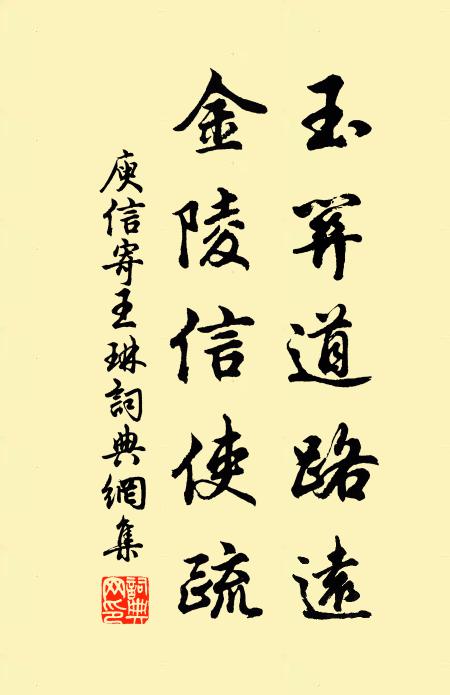 玉關道路遠
金陵信使疏
庾信寄王琳詞典網集
詞典网印